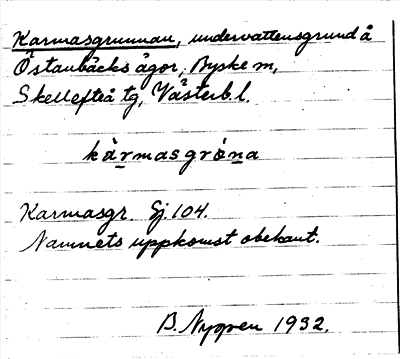 Karmasgrunnan, undervattensgrund å
Östanbäcks ägor, Byske sn,
Skellefteå tg, Västerb. l.
kàrmasgróna
Karmasgr. Sj. 104.
Namnets uppkomst obekant.
B. Nygren 1932.